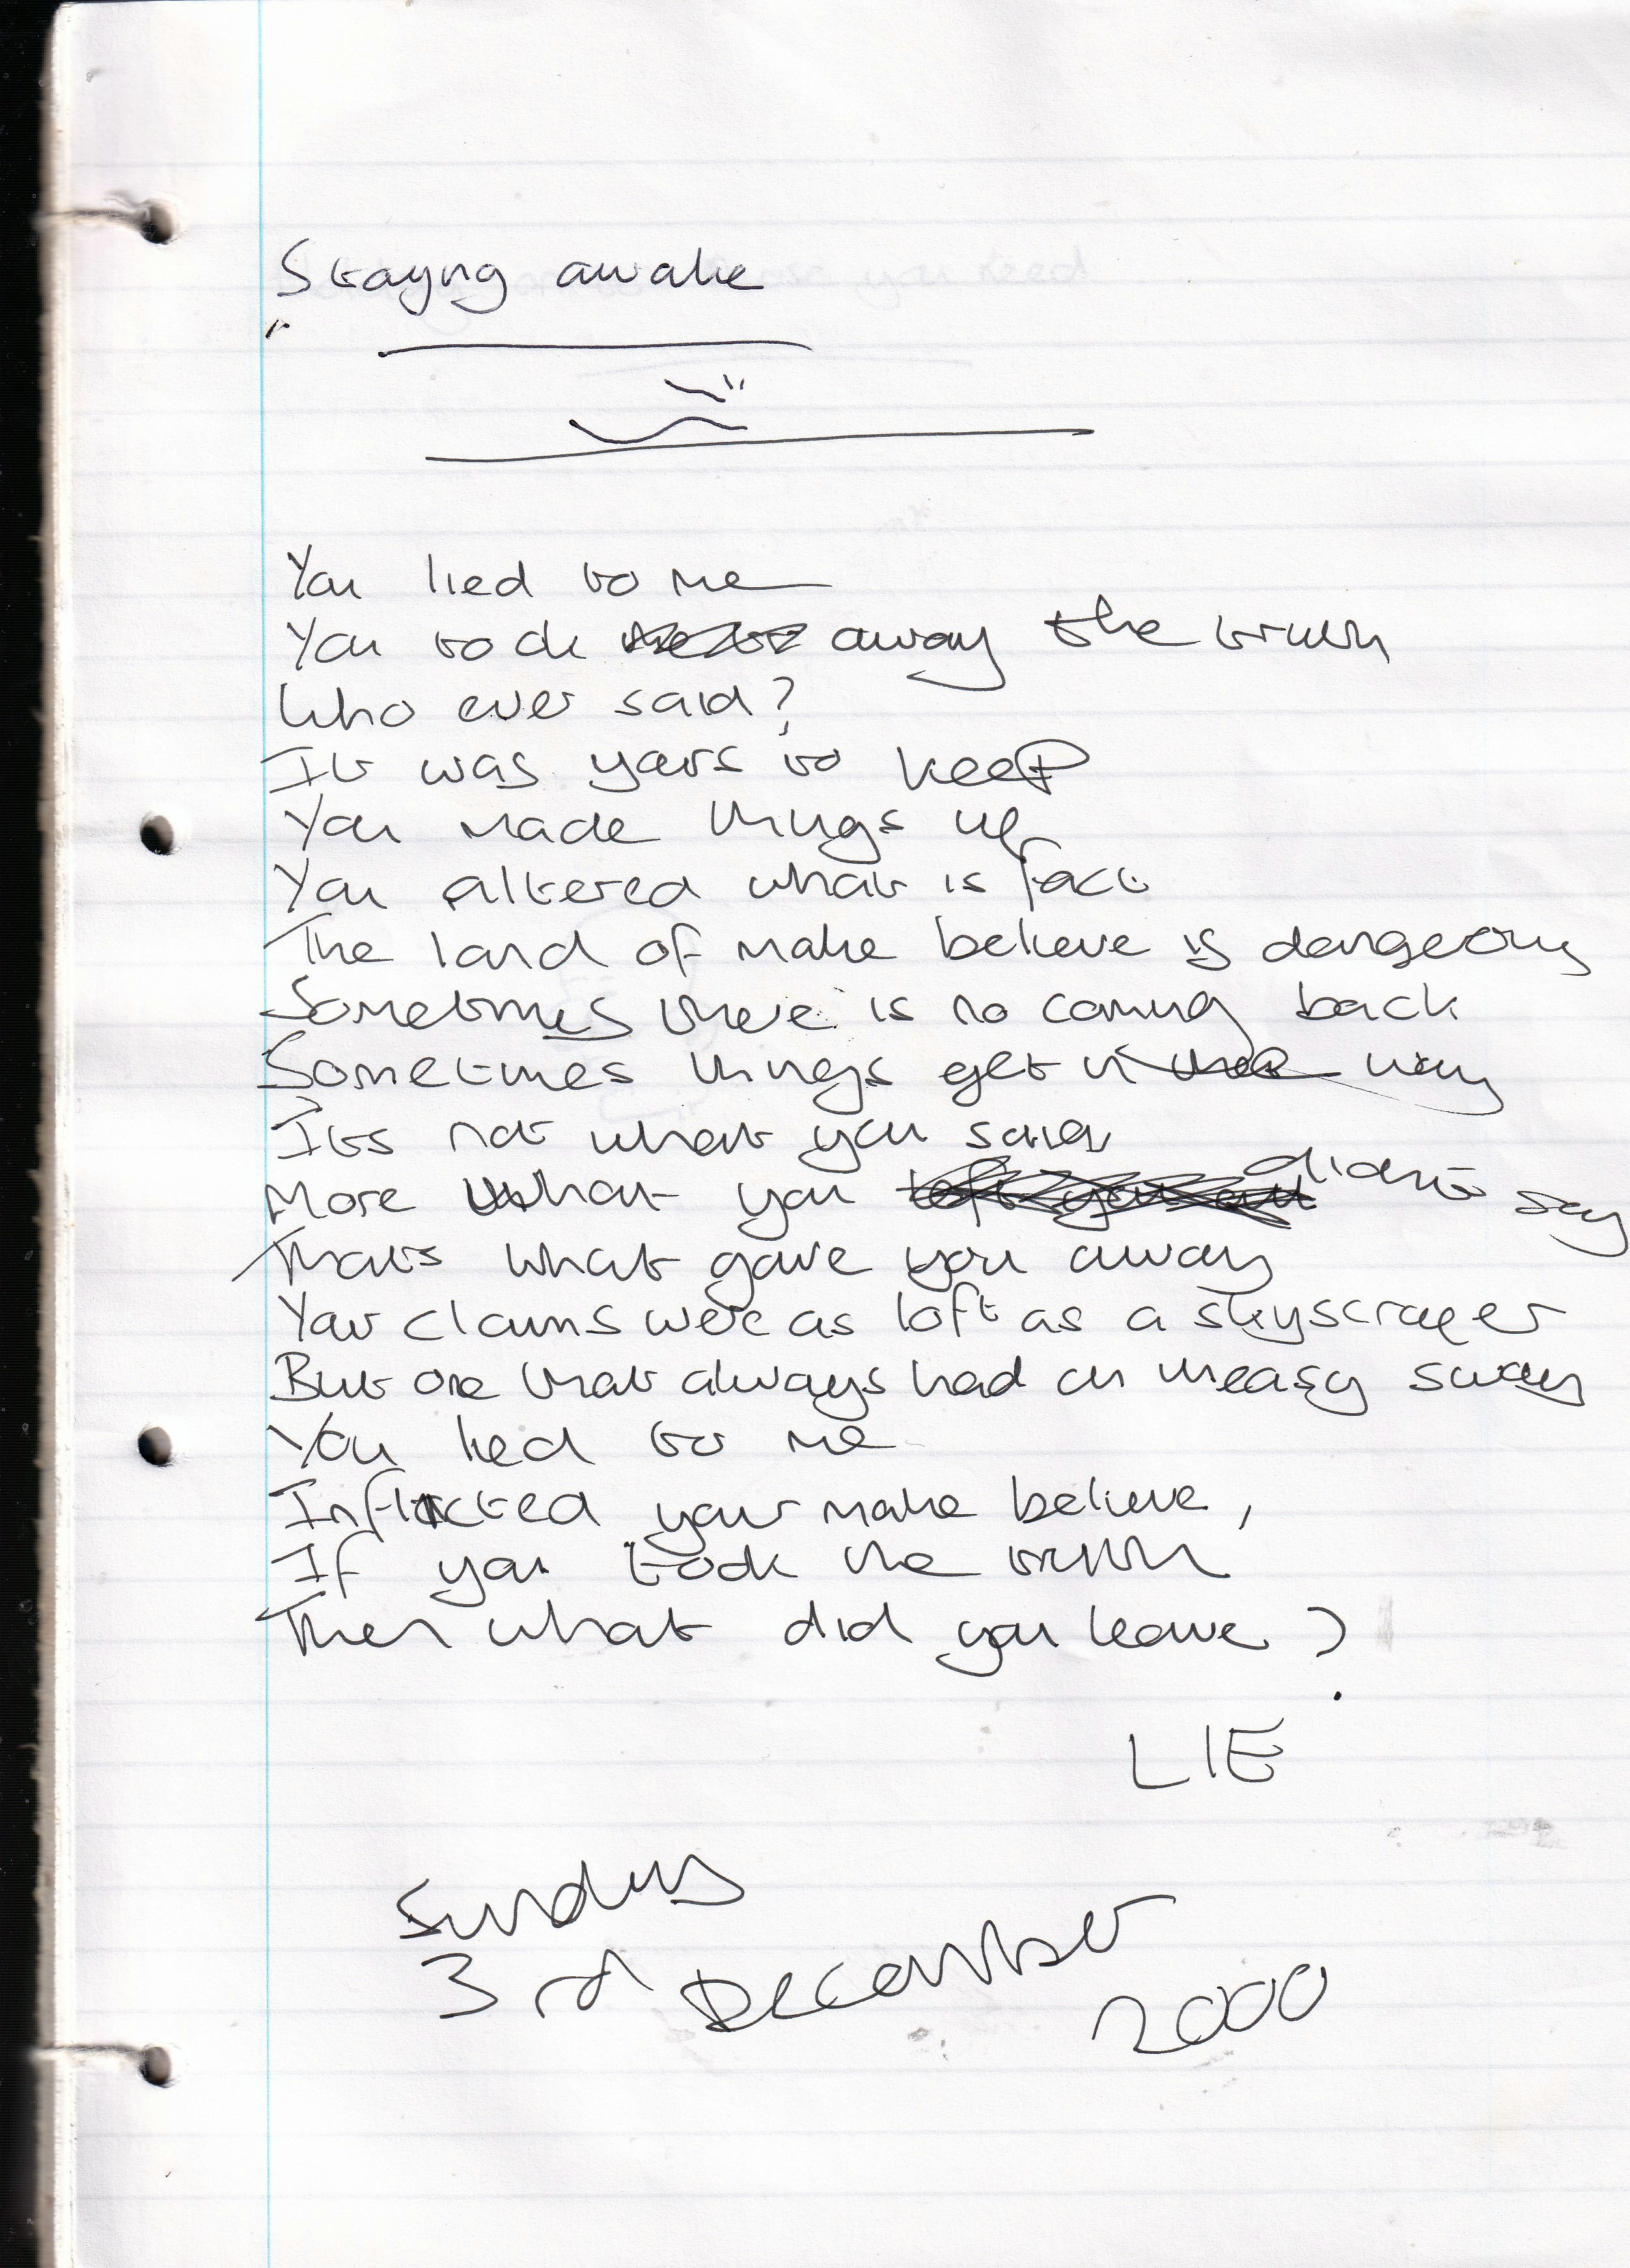 Staying awake
You lied to me
You took away the truth
Who ever said?
It was yours to keep
You made things up
You altered what is fact
The land of make believe is dangerous
Sometimes there is no coming back
Sometimes things get in the way
Its not what you said
More what you didnt say
Thats what gave you away
Your claims were as loft as a skyscraper
But one that always had an uneasy sway
You lied to me
Inflicted your make believe,
If you took the truth
Then what did you leave?
LIE
Sunday
3rd December
2000